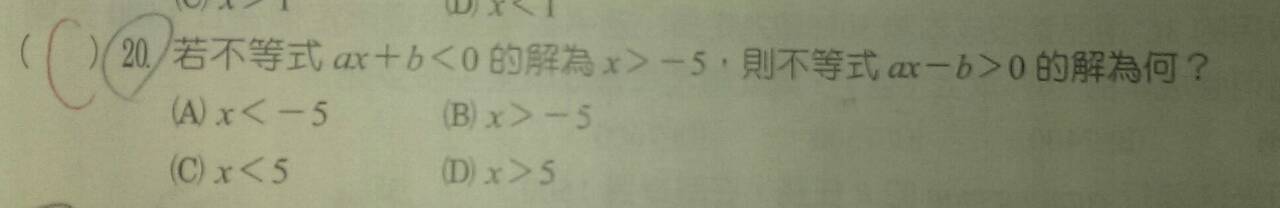 (C) x>1 (D) x<1
( C ) 20. 若不等式 ax+b<0 的解為 x>-5，則不等式 ax-b>0 的解為何？
(A) x<-5 (B) x>-5
(C) x<5 (D) x>5